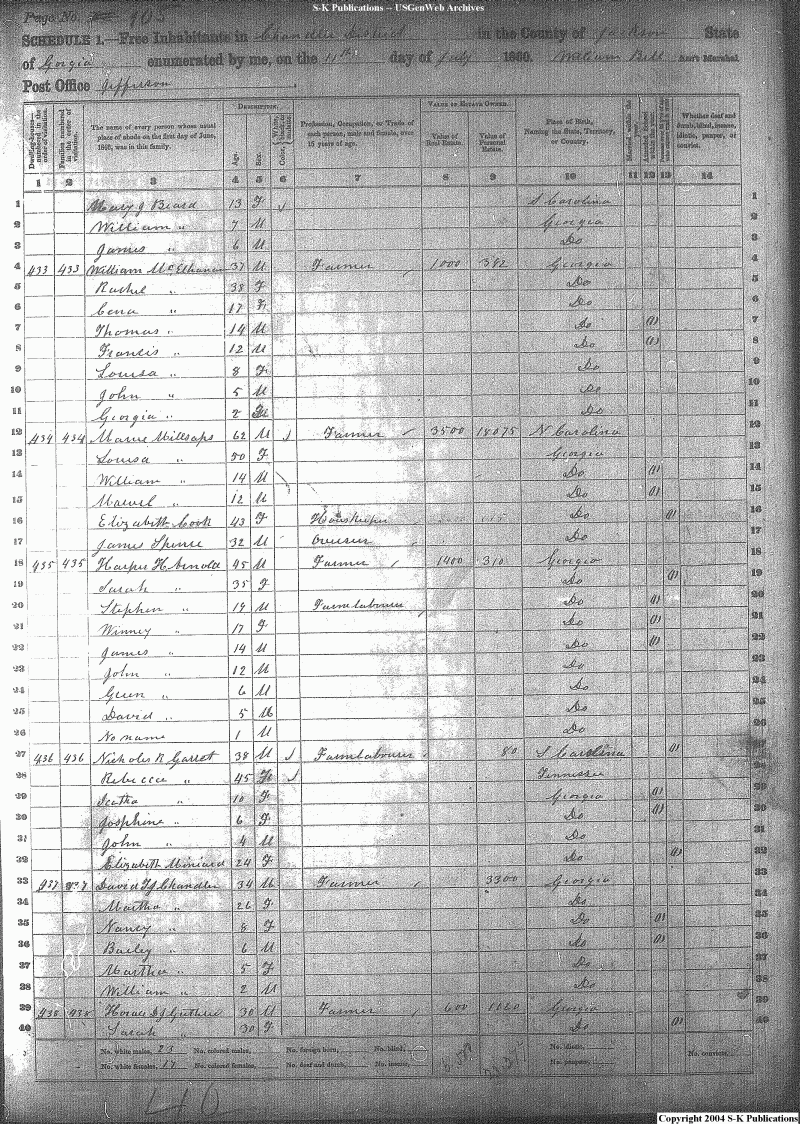 S-K Publications – USGenWeb Archives
Page No. 905
SCHEDULE 1.—Free Inhabitants in Chandler District in the County of Jackson State
of Gorgia enumerated by me, on the 11th day of July 1860. William Bell Ass't Marshal
Post Office Jefferson
DESCRIPTION. VALUE OF ESTATE OWNED.
Dwelling-houses—numbered in the order of visitation. Families numbered in the order of visitation. The name of every person whose usual place of abode on the first day of June, 1860, was in this family. Age. Sex. Color, Profession, Occupation, or Trade of each person, male and female, over 15 years of age. Value of Real Estate. Value of Personal Estate. Place of Birth, Naming the State, Territory, or Country. Married within the year. Whether deaf and dumb, blind, insane, idiotic, pauper, or convict.
1 2 3 4 5 6 7 8 9 10 11 12 13 14
1 Mary J Beard 13 F S Carolina 1
2 William " 7 M Georgia 2
3 James " 6 M Do 3
4 433 433 William McElhanon 37 M Farmer 1000 392 Georgia 4
5 Rachel " 38 F Do 5
6 Cena " 17 F Do 6
7 Thomas " 14 M Do (1) 7
8 Francis " 12 M Do (1) 8
9 Louisa " 8 F Do 9
10 John " 5 M Do 10
11 Georgia " 2 Do 11
12 434 434 Millsaps 62 M Farmer 3500 18075 N Carolina 12
13 Louisa " 50 F Georgia 13
14 William " 14 M Do (1) 14
15 " 12 M Do (1) 15
16 Elizabeth Cook 43 F Houskeeper Do (1) 16
17 James Spence 32 M Overseer Do 17
18 435 435 Harper H Arnold 45 M Farmer 1400 310 Georgia 18
19 Sarah " 35 F Do (1) 19
20 Stephen " 19 M Farmlabourer Do (1) 20
21 Winney " 17 F Do (1) 21
22 James " 14 M Do (1) 22
23 John " 12 M Do 23
24 Green " 6 M Do 24
25 David " 5 M Do 25
26 No name 1 M Do 26
27 436 436 Nicholas R Garret 38 M Farmlabourer 80 S Carolina (1) 27
28 Rebecca " 45 F Tennessee 28
29 " 10 F Georgia (1) 29
30 Josphine " 6 F Do (1) 30
31 John " 4 M Do 31
32 Elizabeth Miniard 24 F Do (1) 32
33 437 437 David Chandler 34 M Farmer 3300 Georgia 33
34 Martha " 26 F Do 34
35 Nancy " 8 F Do (1) 35
36 Bailey " 6 M Do (1) 36
37 Martha " 5 F Do 37
38 William " 2 M Do 38
39 438 438 Guthrie 30 M Farmer 600 1020 Georgia 39
40 Sarah " 30 F Do (1) 40
No. white males, 23 No. colored males, No. foreign born, No. blind, No. idiotic,
No. white females, 17 No. colored females, No. deaf and dumb, No. insane, No. paupers, No. convicts,
40
Copyright 2004 S-K Publications